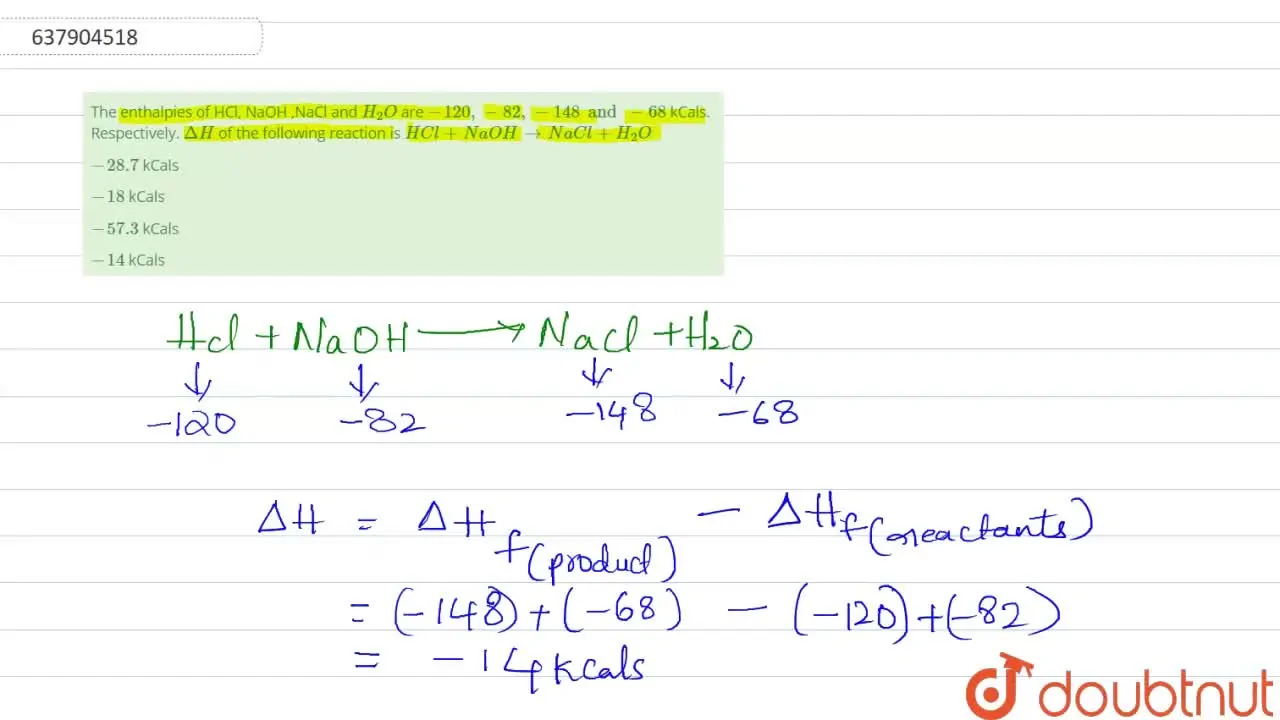 637904518
The enthalpies of HCl, NaOH ,NaCl and H₂O are −120, −82, −148 and −68 kCals.
Respectively. ΔH of the following reaction is HCl + NaOH → NaCl + H₂O
−28.7 kCals
−18 kCals
−57.3 kCals
−14 kCals
Hcl + NaOH → NaCl + H₂O
↓ ↓ ↓ ↓
−120 −82 −148 −68
ΔH = ΔH f(product) − ΔH f(reactants)
= (−148) + (−68) − (−120) + (−82)
= −14 kcals
doubtnut